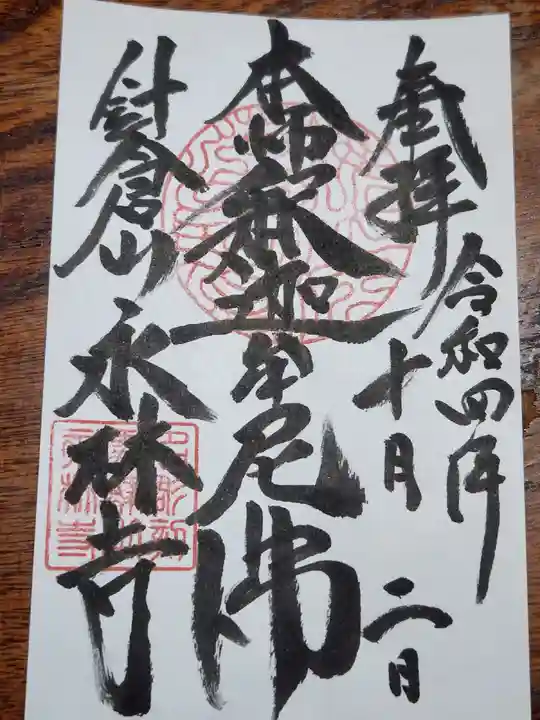 奉拝
令和四年
十月二日
本師釈迦牟尼佛
針倉山永林寺